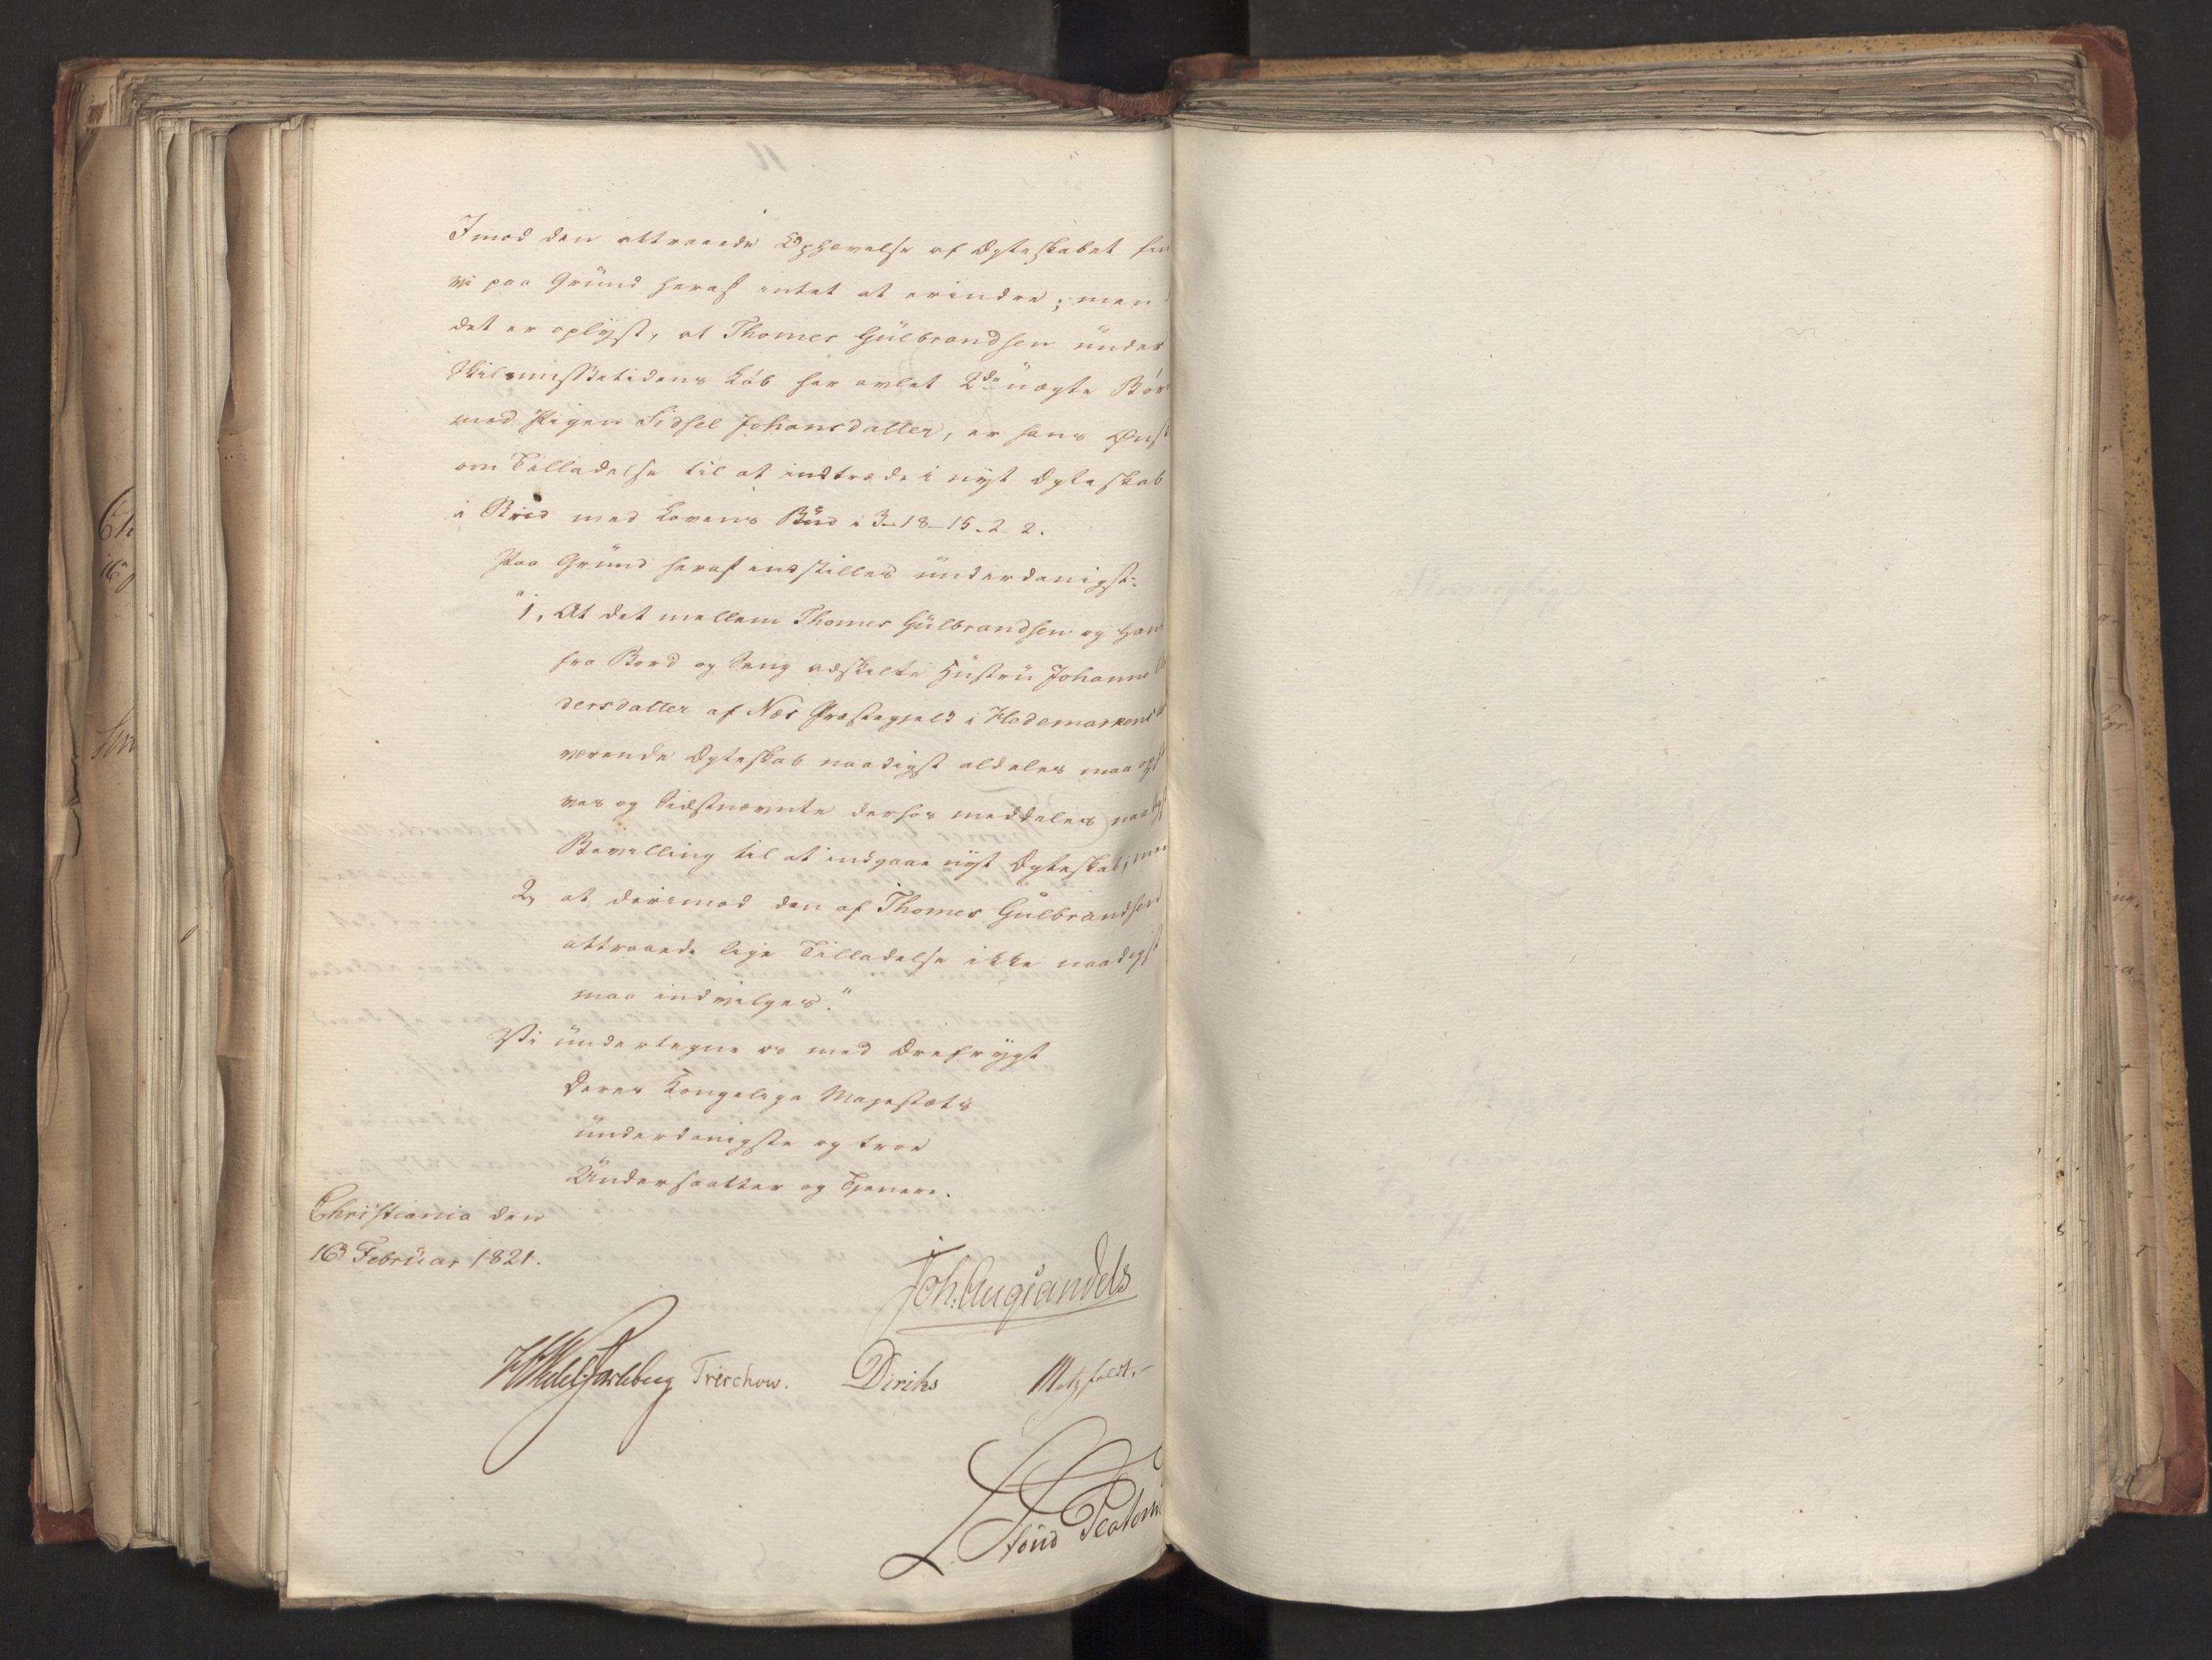 Imod den attraaede Ophævelse af Ægteskabet
vi paa Grund heraf intet at erindre; men
det er oplyst, at Thomes Gulbrandsen under
Skilsmissetidens Løb har avlet 2de uægte Bør
med Pigen Sidsel Johansdatter, er hans Øns
om Tilladelse til at indtræde i nyt Ægteskab
i Strid med Lovens Bud i 3-18-15-2 2.
Paa Grund heraf indstilles underdanigst:
"1, At det mellem Thomes Gulbrandsen og Hans
fra Bord og Seng adskilte Hustru Johanne
dersdatter af Næs Præstegjeld i Hedemarkens
værende Ægteskab naadigst aldeles maa oph
ves og Sidstnævnte derhos meddeles
Bevilling til at indgaae nyt Ægteskab; men
2, at derimod den af Thomes Gulbrandsen
attraaede lige Tilladelse ikke naadigst
maa indvilges."
Vi undertegne os med Ærefrygt
Deres Kongelige Majestæts
underdanigste og troe
Undersaatter og Tjenere.
Christiania den
16de Februar 1821.
Joh. Aug Sandels
HWedel Jarlsberg Treschow. Diriks Motzfeldt.